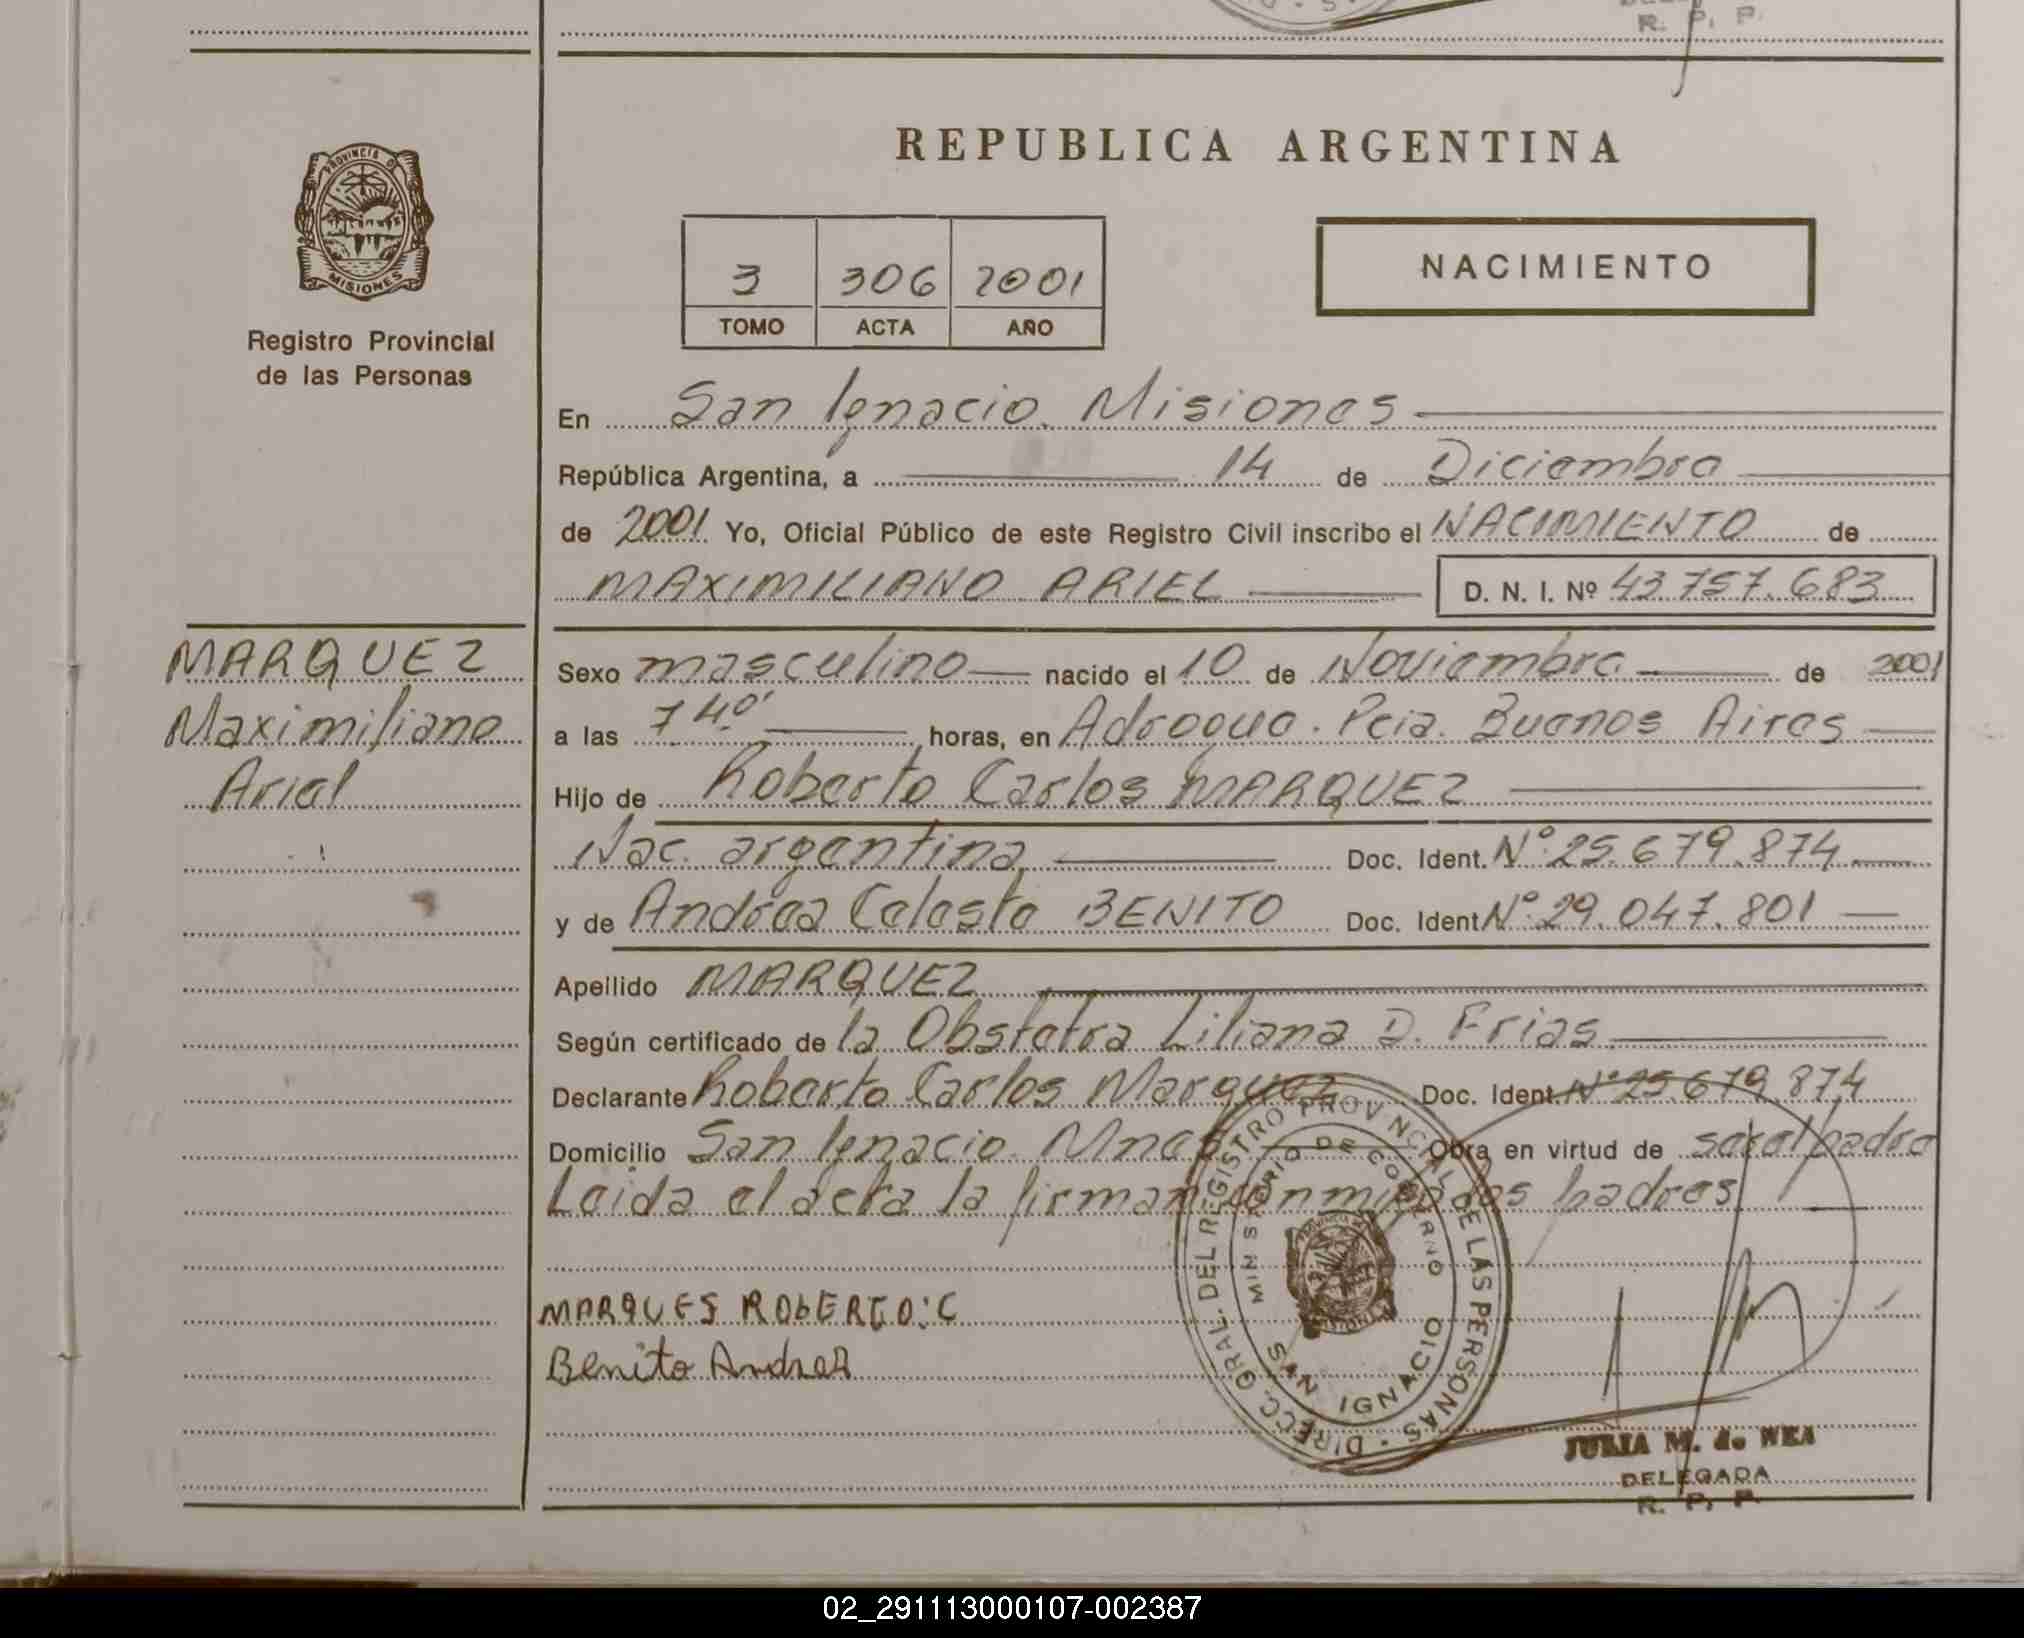 R. P. P.
REPUBLICA ARGENTINA
PROVINCIA DE
MISIONES
Registro Provincial
de las Personas
3 306 2001
TOMO ACTA AÑO
NACIMIENTO
En San Ignacio. Misiones
República Argentina, a 14 de Diciembre
de 2001 Yo, Oficial Público de este Registro Civil inscribo el NACIMIENTO de
MAXIMILIANO ARIEL D. N. I. Nº 43.757.683
MARQUEZ
Maximiliano
Ariel
Sexo masculino nacido el 10 de Noviembre de 2001
a las 7 40' horas, en Adrogue. Pcia. Buenos Aires
Hijo de Roberto Carlos MARQUEZ
Nac. argentina Doc. Ident. Nº 25.679.874
y de Andrea Celeste BENITO Doc. Ident Nº 29.047.801
Apellido MARQUEZ
Según certificado de la Obstetra Liliana D. Frias
Declarante Roberto Carlos Marquez Doc. Ident. Nº 25.679.874
Domicilio San Ignacio Mnes Obra en virtud de ser el padre
Leida el acta la firman conmigo los padres
MARQUES ROBERTO: C
Benito Andrea
DIRECC. GRAL. DEL REGISTRO PROVINCIAL DE LAS PERSONAS
MINISTERIO DE GOBIERNO
SAN IGNACIO
JULIA M. de WEA
DELEGADA
R. P. P.
02_291113000107-002387